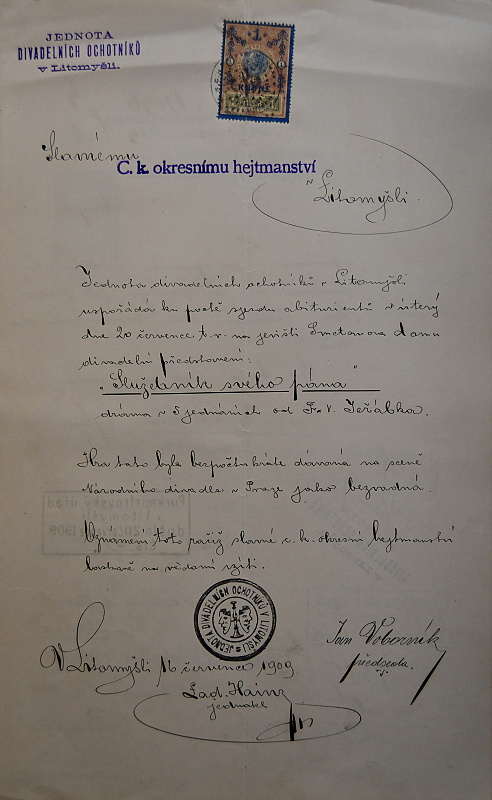 JEDNOTA
DIVADELNÍCH OCHOTNÍKŮ
v Litomyšli.
1
Slavnému
C. k. okresnímu hejtmanství
v Litomyšli.
Jednota divadelních ochotníků v Litomyšli
uspořádá ku poctě sjezdu abiturientů v úterý
dne 20 července t. r. na jevišti Smetanova domu
divadelní představení:
„Služebník svého pána"
drama v 5 jednáních od Fr. V. Jeřábka.
Hra tato byla bezpočtukráte dávána na scéně
Národního divadla v Praze jako bezvadná.
Oznámení toto račiž slavné c. k. okresní hejtmanství
laskavě na vědomí vzíti.
JEDNOTA DIVADELNÍCH OCHOTNÍKŮ V LITOMYŠLI
V Litomyšli 16 července 1909
Jan Voborník
předseda.
Lad. Hainz
jednatel